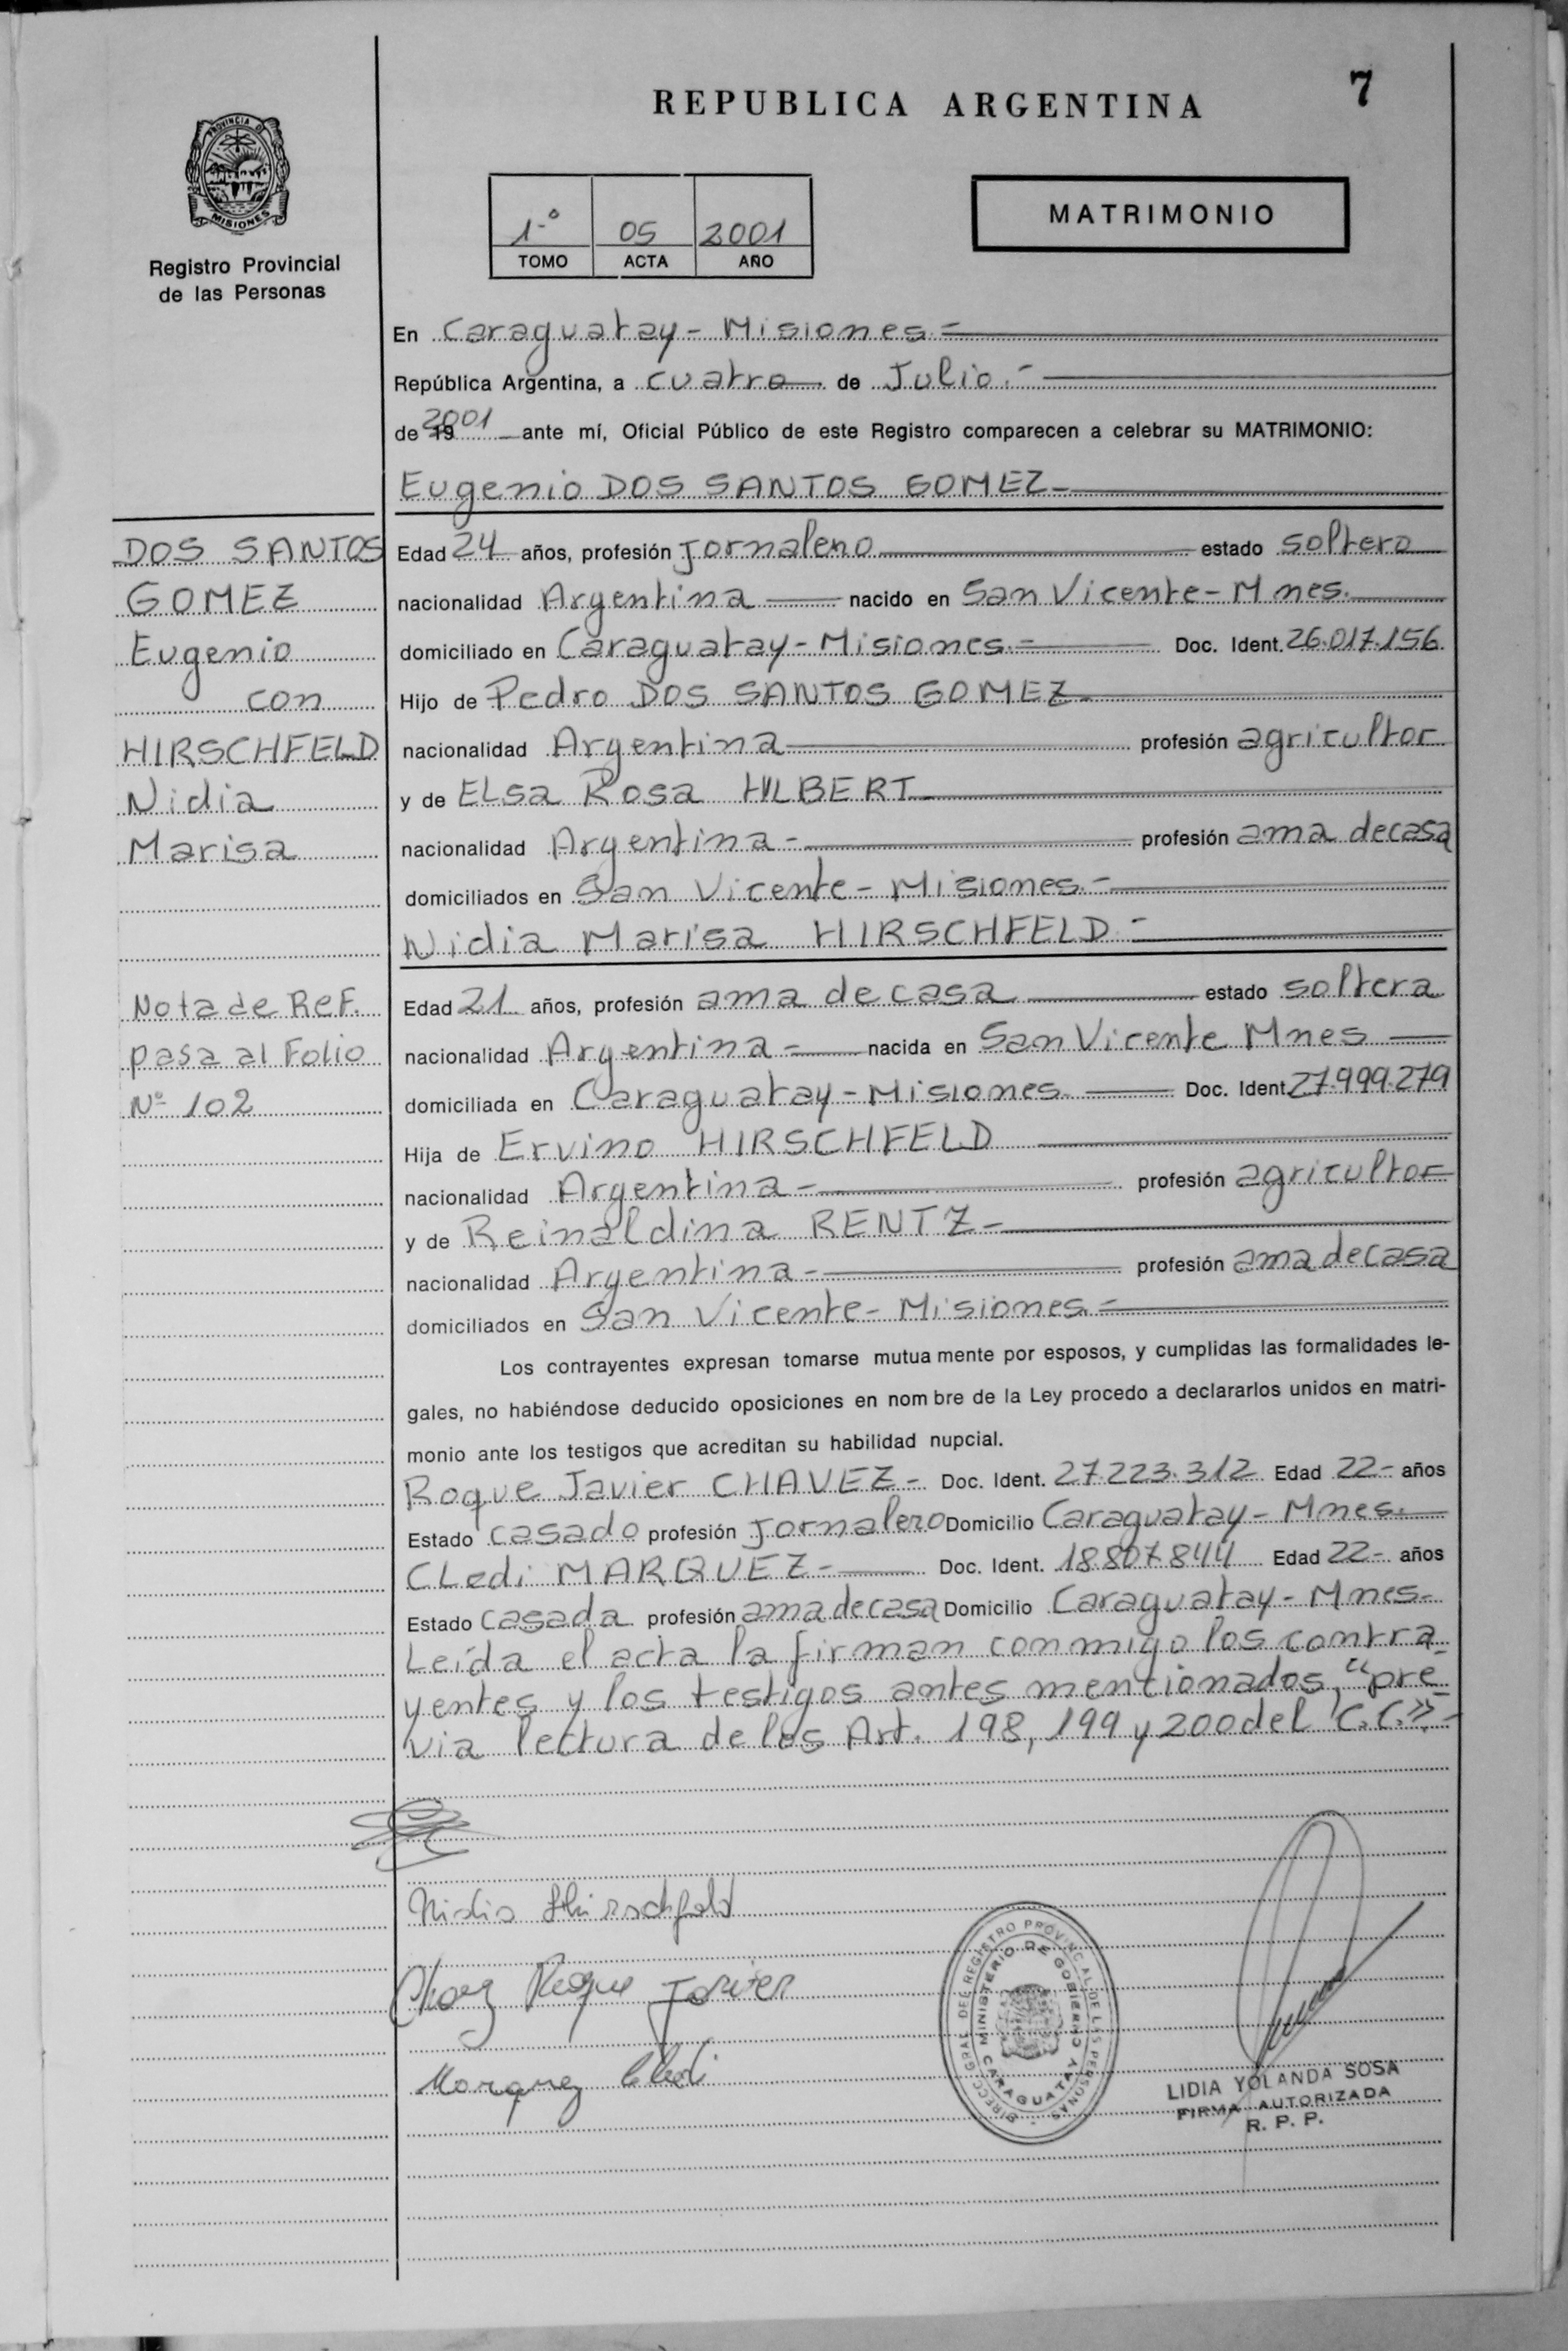 7
REPUBLICA ARGENTINA
PROVINCIA DE
MISIONES
Registro Provincial
de las Personas
1º 05 2001
TOMO ACTA AÑO
MATRIMONIO
En Caraguatay - Misiones.=
República Argentina, a cuatro de Julio.-
de 19 2001 ante mí, Oficial Público de este Registro comparecen a celebrar su MATRIMONIO:
Eugenio DOS SANTOS GOMEZ-
DOS SANTOS
GOMEZ
Eugenio
con
HIRSCHFELD
Nidia
Marisa
Nota de Ref.
pasa al Folio
Nº 102
Edad 24 años, profesión Jornalero estado soltero
nacionalidad Argentina nacido en San Vicente - Mnes.
domiciliado en Caraguatay - Misiones.= Doc. Ident. 26.017.156
Hijo de Pedro DOS SANTOS GOMEZ-
nacionalidad Argentina profesión agricultor
y de ELsa Rosa HILBERT
nacionalidad Argentina - profesión ama de casa
domiciliados en San Vicente - Misiones.-
Nidia Marisa HIRSCHFELD.-
Edad 21 años, profesión ama de casa estado soltera
nacionalidad Argentina - nacida en San Vicente Mnes
domiciliada en Caraguatay - Misiones. Doc. Ident. 27.999.279
Hija de Ervino HIRSCHFELD
nacionalidad Argentina - profesión agricultor
y de Reinaldina RENTZ-
nacionalidad Argentina - profesión ama de casa
domiciliados en San Vicente - Misiones.=
Los contrayentes expresan tomarse mutua mente por esposos, y cumplidas las formalidades le-
gales, no habiéndose deducido oposiciones en nom bre de la Ley procedo a declararlos unidos en matri-
monio ante los testigos que acreditan su habilidad nupcial.
Roque Javier CHAVEZ- Doc. Ident. 27.223.312 Edad 22- años
Estado casado profesión Jornalero Domicilio Caraguatay - Mnes.
CLedi MARQUEZ- Doc. Ident. 18.807.844 Edad 22- años
Estado casada profesión ama de casa Domicilio Caraguatay - Mnes-
Leída el acta la firman conmigo los contra
yentes y los testigos antes mencionados, "pre-
via lectura de los Art. 198, 199 y 200 del C.C."-
Nidia Hirschfeld
Chavez Roque Javier
Marquez Cledi
DIRECC. GRAL. DEL REGISTRO PROVINCIAL DE LAS PERSONAS
MINISTERIO DE GOBIERNO
CARAGUATAY
LIDIA YOLANDA SOSA
FIRMA AUTORIZADA
R. P. P.